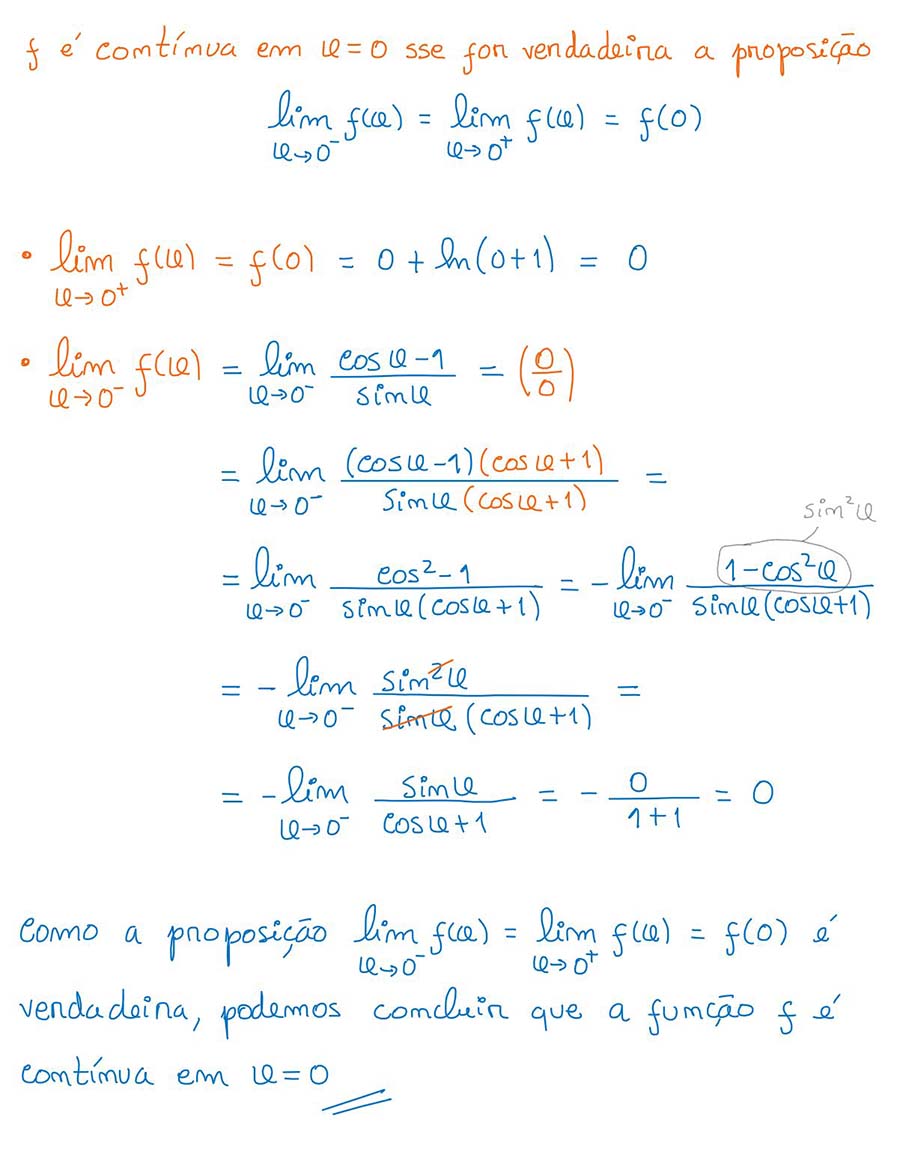 f é contínua em x=0 sse for verdadeira a proposição
lim_{x→0⁻} f(x) = lim_{x→0⁺} f(x) = f(0)
• lim_{x→0⁺} f(x) = f(0) = 0 + ln(0+1) = 0
• lim_{x→0⁻} f(x) = lim_{x→0⁻} (cos x - 1)/(sin x) = (0/0)
= lim_{x→0⁻} ((cos x - 1)(cos x + 1))/(sin x (cos x + 1)) =
sin²x
= lim_{x→0⁻} (cos² - 1)/(sin x (cos x + 1)) = - lim_{x→0⁻} (1 - cos²x)/(sin x (cos x + 1))
= - lim_{x→0⁻} (sin²x)/(sin x (cos x + 1)) =
= - lim_{x→0⁻} (sin x)/(cos x + 1) = - 0/(1+1) = 0
Como a proposição lim_{x→0⁻} f(x) = lim_{x→0⁺} f(x) = f(0) é
verdadeira, podemos concluir que a função f é
contínua em x=0